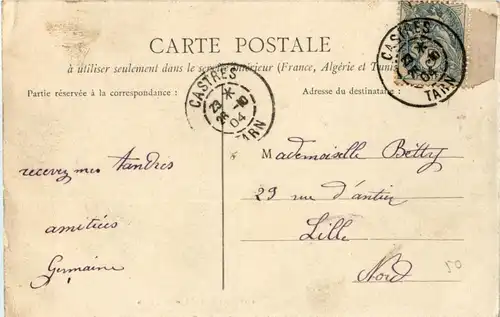 CARTE POSTALE
à utiliser seulement dans le service intérieur (France, Algérie et Tunis
Partie réservée à la correspondance :
Adresse du destinataire :
CASTRES
23 * 10
26
04
TARN
CASTRES
23 *
04
TARN
recevez mes tendres
amitiées
Germaine
Mademoiselle Betty
29 rue d'antin
Lille
Nord
50